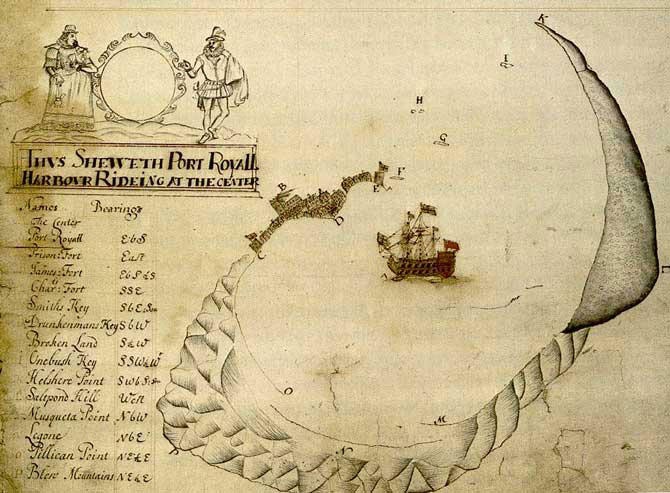 Thus Sheweth Port Royall
Harbour Rideing at the Center
Names Bearings
The Center
Port Royall EbS
Prison: Fort East
James: Fort EbS
Char: Fort SSE
Smiths Key SbE
Drunkenmans Key SbW
Broken Land
Onebush Key
Helshere Point
Saltpond Hill West
Musqueta Point NbW
Legone NbE
Pillican Point
Blew Mountains
B
C
D
E
F
G
H
I
K
M
N
O